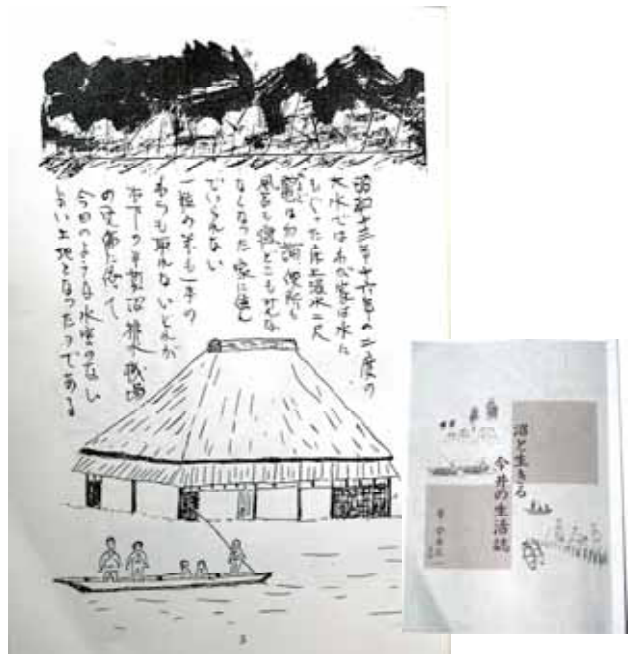 昭和十三年十六年の二度の
大水ではわが家は水に
もぐった床上浸水二尺
は勿論便所も
風呂も寝どこも
なくなった家に住ん
でいられない
一粒の米も一本の
わらも取れないどんか
木下の手賀沼排水機場
の完備に依って
今日のような水害のない
よい土地となったのである
3
沼と生きる
今井の生活誌